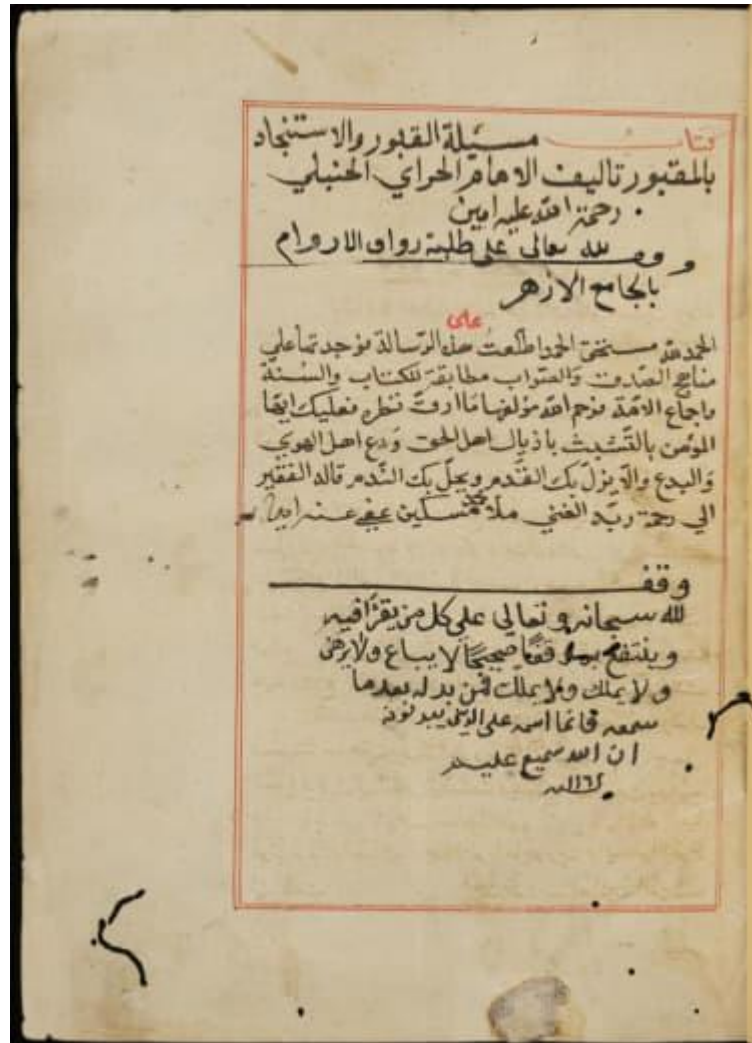 كتاب مسئلة القبور والاستنجاد
بالمقبور تاليف الامام الحراني الحنبلي
رحمة الله عليه امين
وقف لله تعالى على طلبة رواق الاروام
بالجامع الازهر
على
الحمد لله مستحق الحمد اطلعت هذه الرسالة فوجدتها علي
مناهج الصدق والصواب مطابقة للكتاب والسنة
واجماع الامة فرحم الله مؤلفها ما ادق نظره فعليك ايها
المؤمن بالتشبث باذيال اهل الحق ودع اهل الهوي
والبدع والا يزل بك القدم ويحل بك الندم قاله الفقير
الي رحمة ربه الغني ملا محمد مسكين عفي عنه امين
وقف
لله سبحانه وتعالى على كل من يقرأ فيه
وينتفع به وقفا صحيحا لا يباع ولا يرهن
ولا يملك ولا يملك فمن بدله بعدما
سمعه فانما اثمه على الذين يبدلونه
ان الله سميع عليم